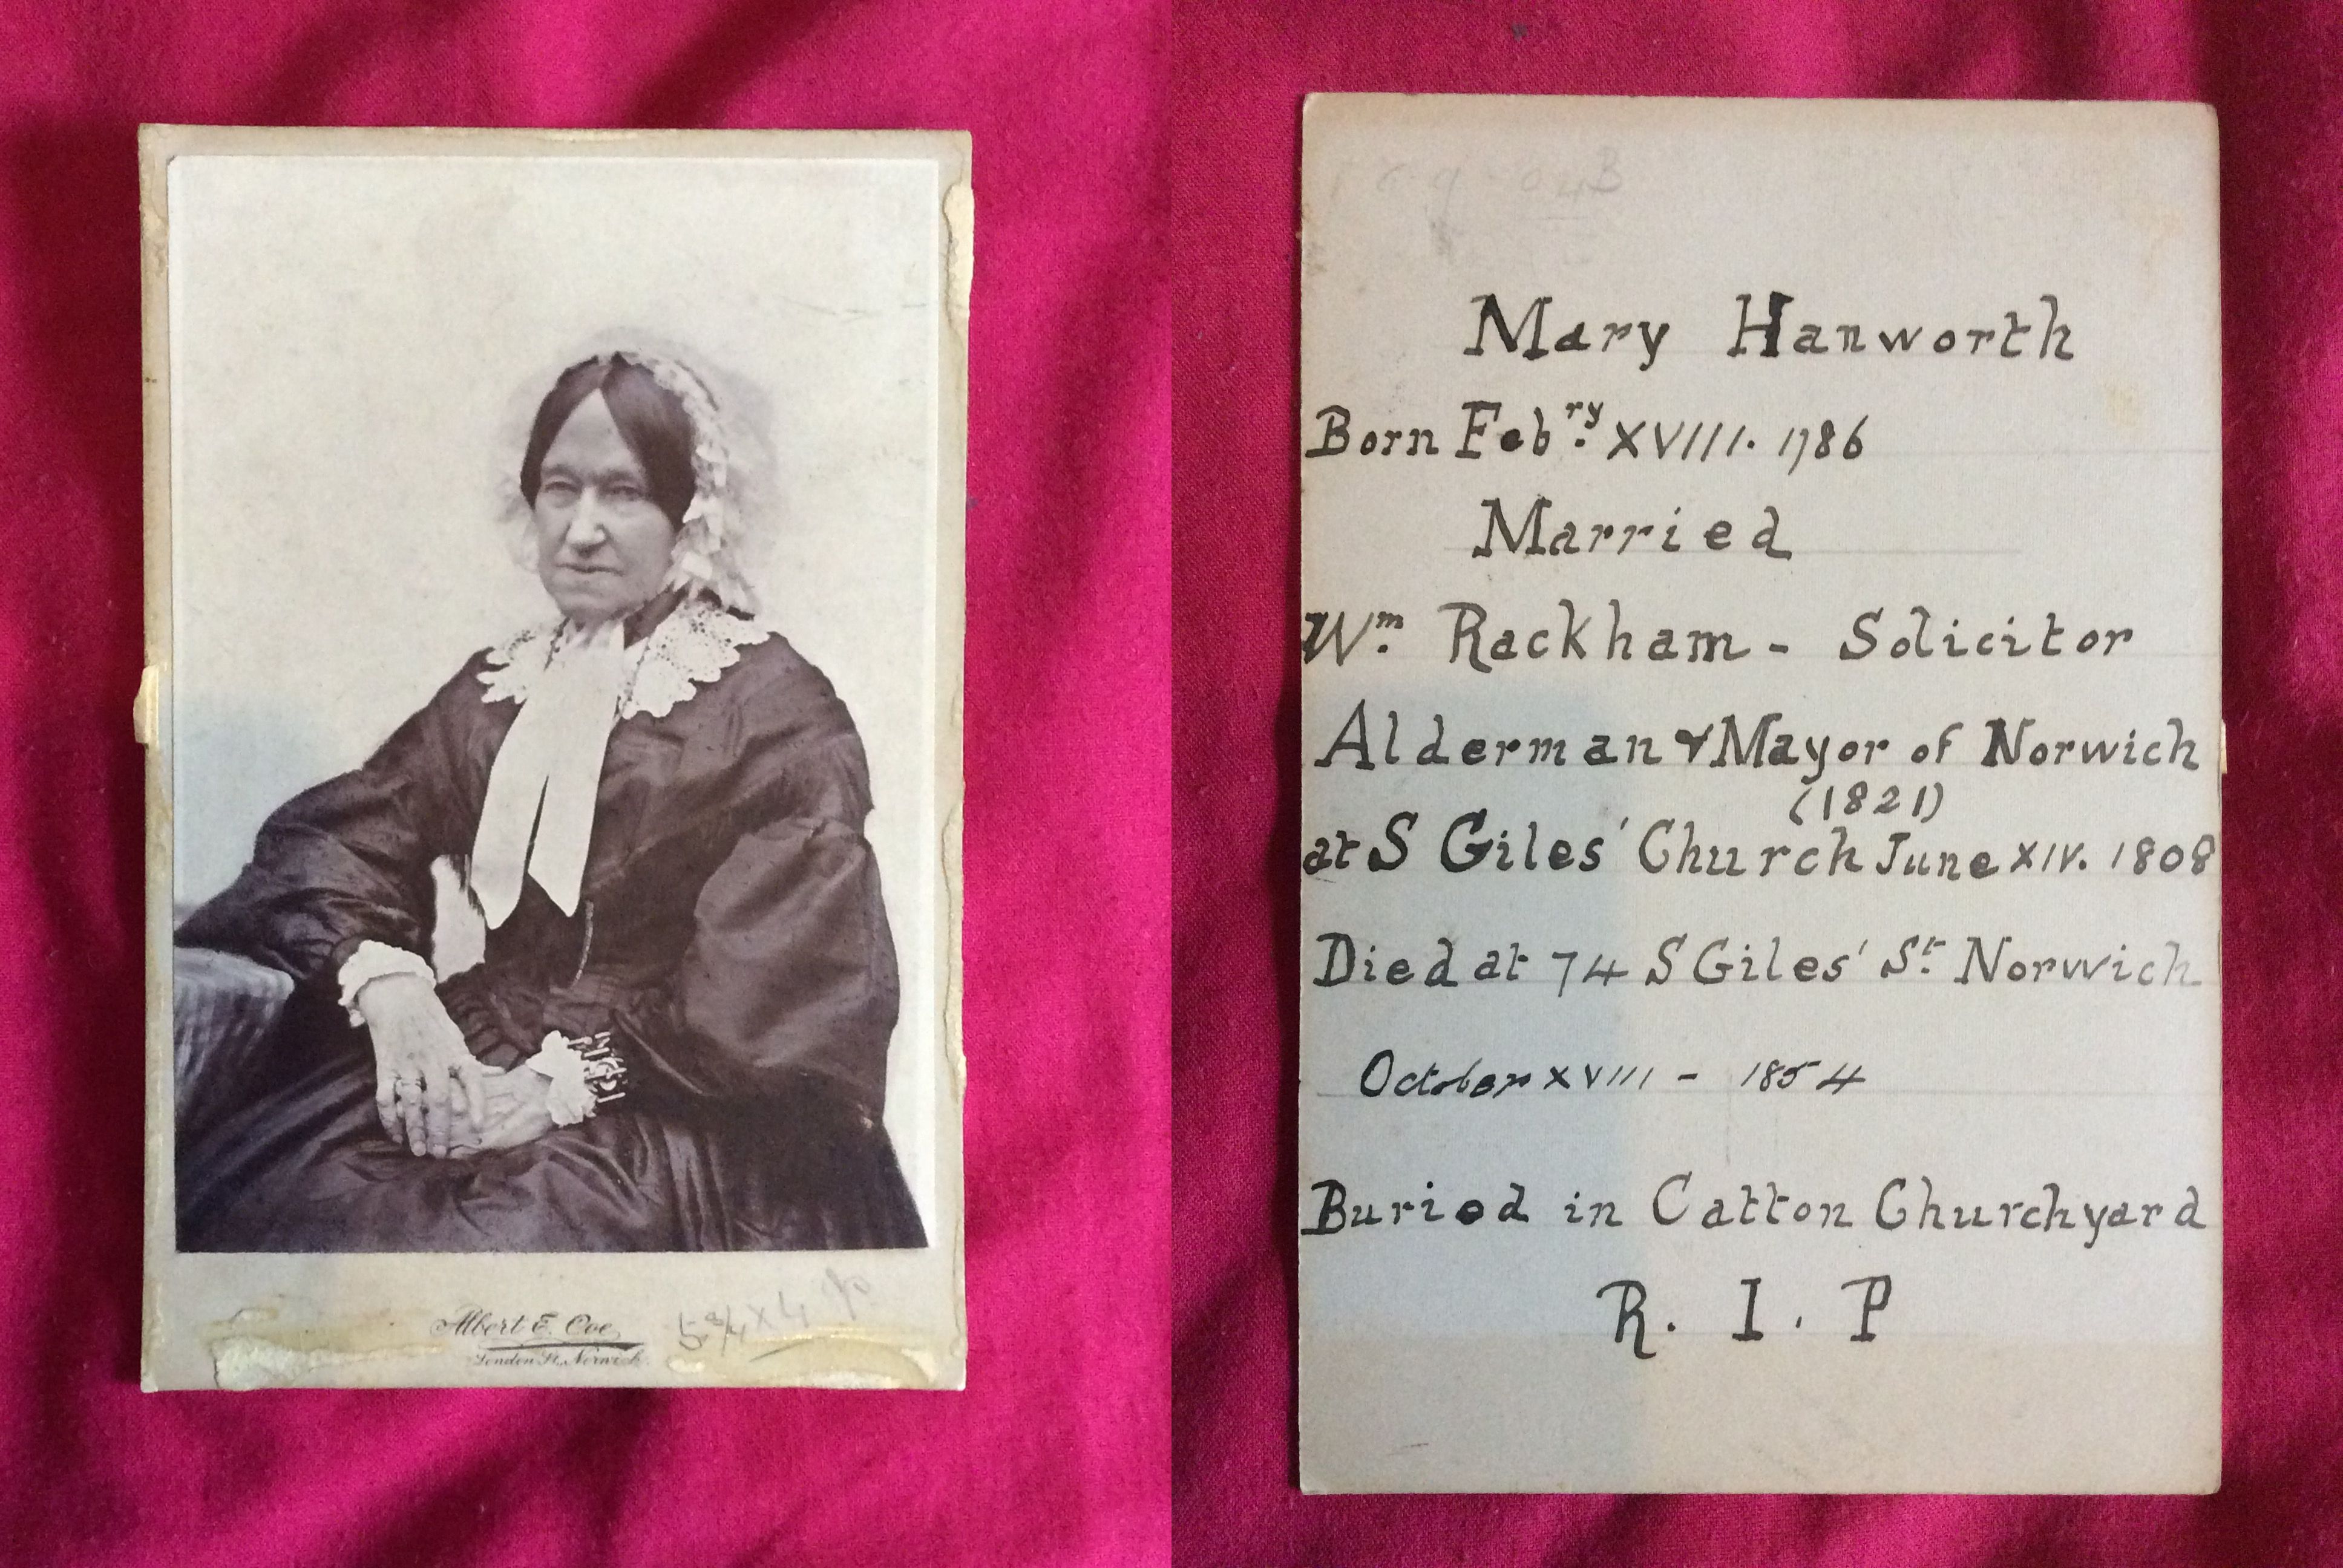 Albert E. Coe,
London St. Norwich.
5 3/4 x 4
Mary Hanworth
Born Feb.ry XVIII. 1786
Married
Wm. Rackham - Solicitor
Alderman & Mayor of Norwich
(1821)
at S Giles' Church June XIV. 1808
Died at 74 S Giles' St. Norwich
October XVIII - 1854
Buried in Catton Churchyard
R. I. P